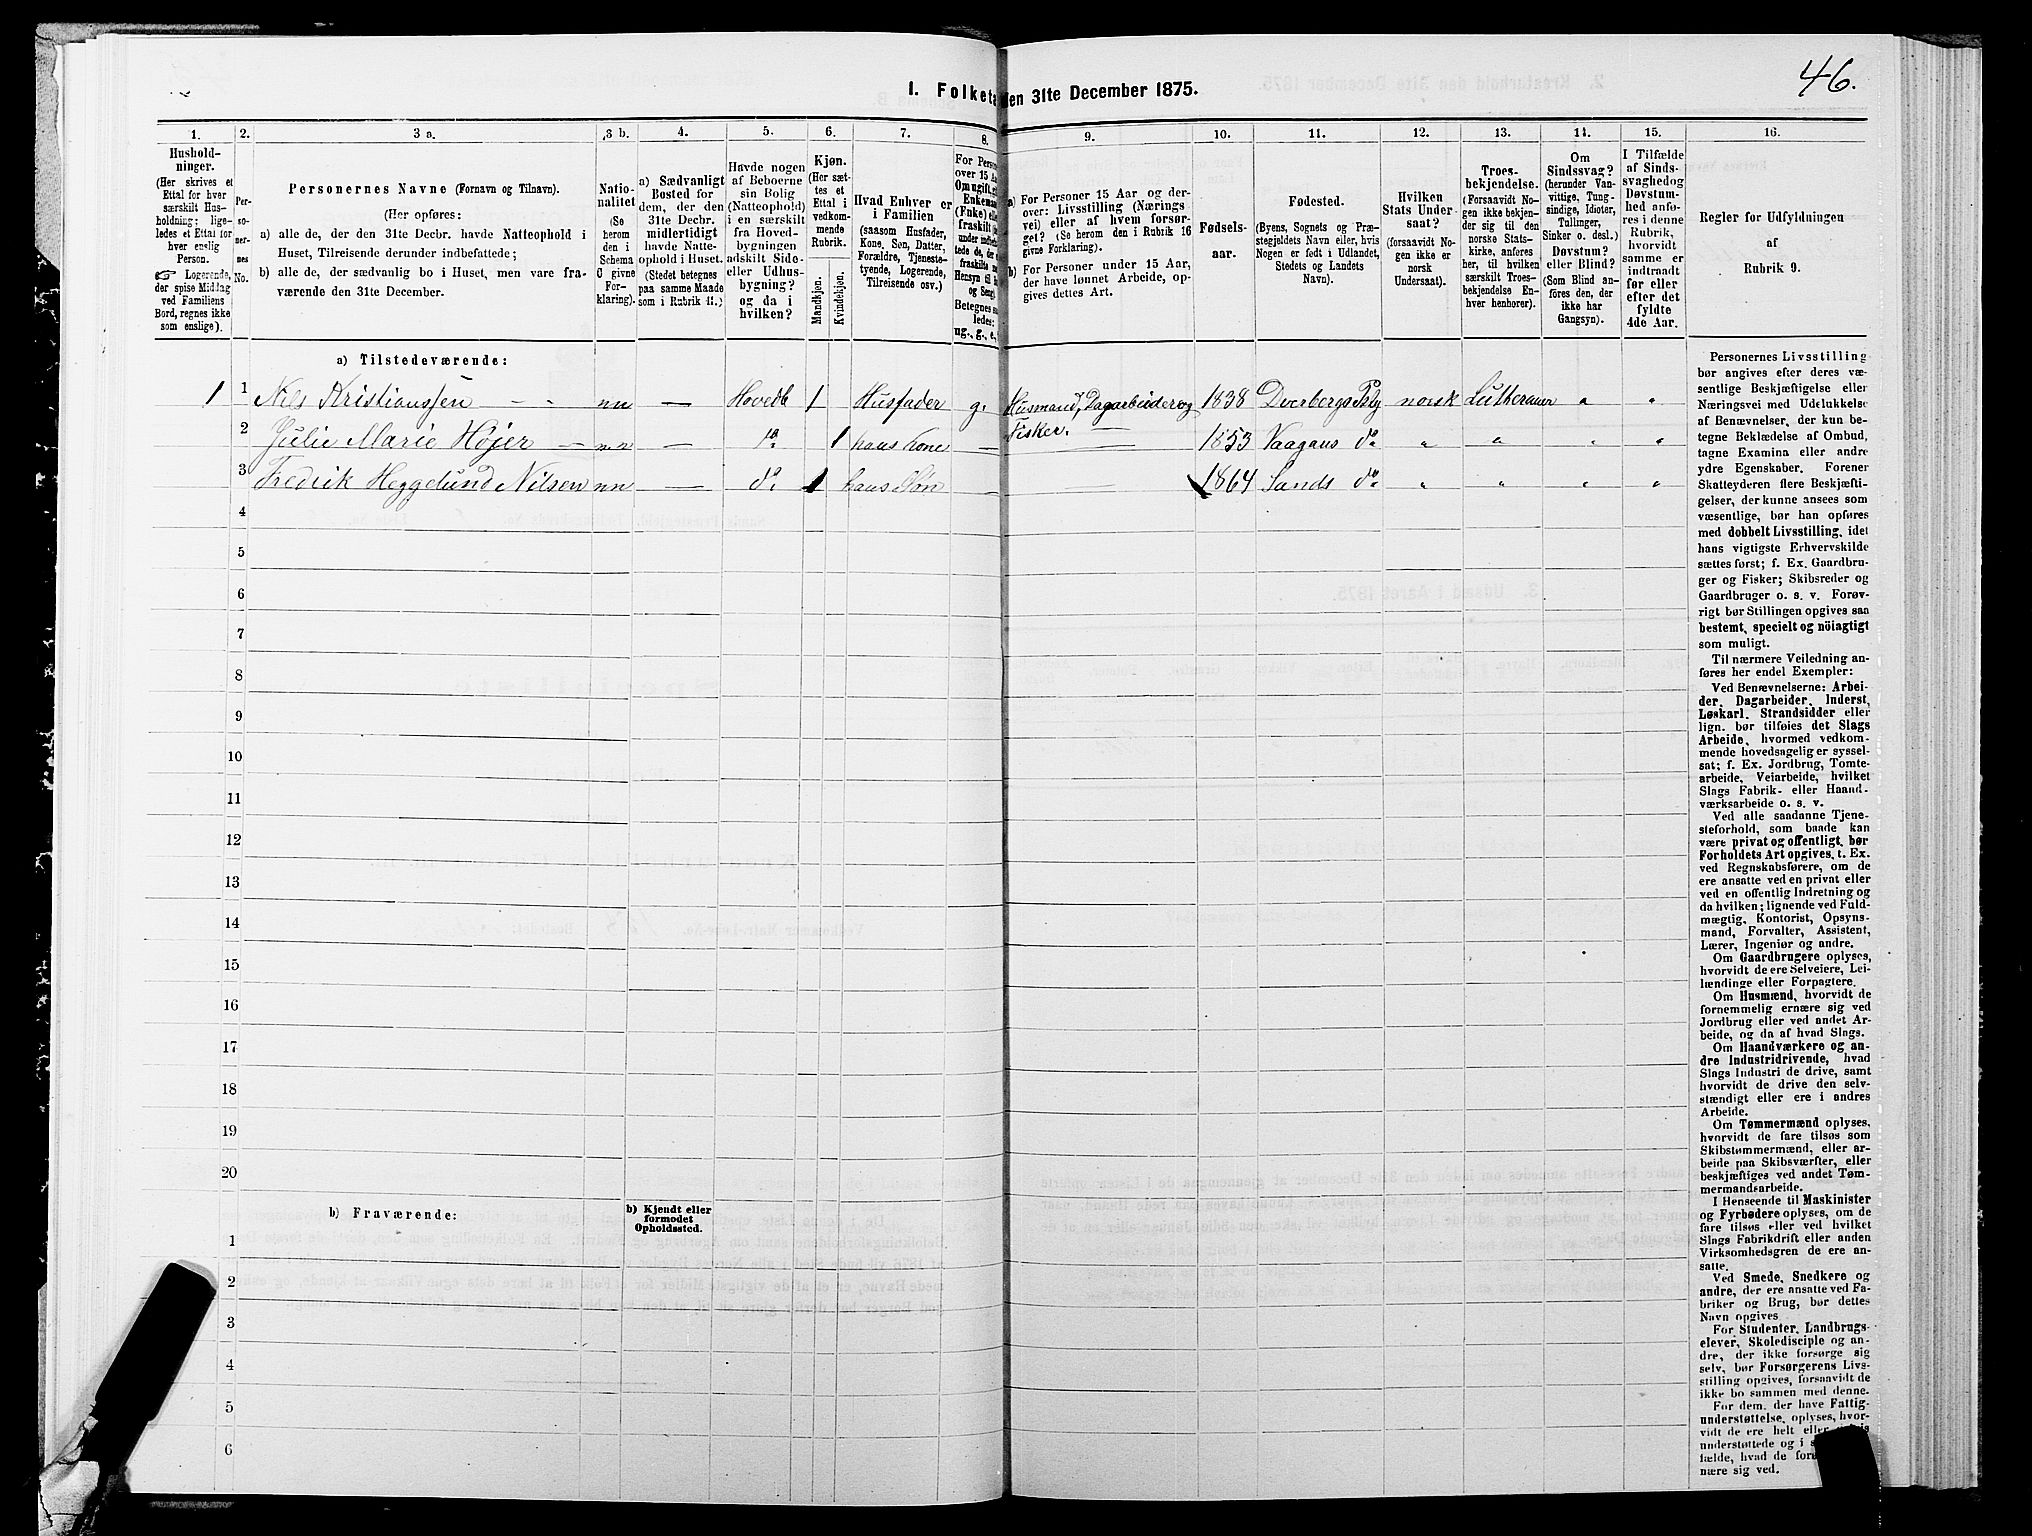 46.
I. Folketa
den 31te December 1875.
1.
2.
3 a.
3 b.
4.
5.
6.
7.
8.
9.
10.
11.
12.
13.
14.
15.
16.
Hushold-
ninger.
(Her skrives et
Ettal for hver
særskilt Hus-
holdning; lige-
ledes et Ettal for
hver enslig
Person.
☞ Logerende,
der spise Middag
ved Familiens
Bord, regnes ikke
som enslige).
Per-
so-
ner-
nes
No.
Personernes Navne (Fornavn og Tilnavn).
(Her opføres:
a) alle de, der den 31te Decbr. havde Natteophold i
Huset, Tilreisende derunder indbefattede;
b) alle de, der sædvanlig bo i Huset, men vare fra-
værende den 31te December.
Natio-
nalitet
(Se
herom
den i
Schema
C givne
For-
klaring).
a) Sædvanligt
Bosted for
dem, der den
31te Decbr.
midlertidigt
havde Natte-
ophold i Huset.
(Stedet betegnes
paa samme Maade
som i Rubrik 11.)
Havde nogen
af Beboerne
sin Bolig
(Natteophold)
i en særskilt
fra Hoved-
bygningen
adskilt Side-
eller Udhus-
bygning?
og da i
hvilken?
Kjøn.
(Her sæt-
tes et
Ettal i
vedkom-
mende
Rubrik.
Mandkjøn.
Kvindekjøn.
Hvad Enhver er
i Familien
(saasom Husfader,
Kone, Søn, Datter,
Forældre, Tjeneste-
tyende, Logerende,
Tilreisende osv.)
For Person
over 15 Aa
Om ugift, g
Enkeman
(Enke) elle
fraskilt
Betegnes
ledes:
ug., g., e.
a) For Personer 15 Aar og der-
over: Livsstilling (Nærings-
vei) eller af hvem forsør-
get? (Se herom den i Rubrik 16
givne Forklaring).
b) For Personer under 15 Aar,
der have lønnet Arbeide, op-
gives dettes Art.
Fødsels-
aar.
Fødested.
(Byens, Sognets og Præ-
stegjeldets Navn eller, hvis
Nogen er født i Udlandet,
Stedets og Landets
Navn).
Hvilken
Stats Under-
saat?
(forsaavidt No-
gen ikke er
norsk
Undersaat).
Troes-
bekjendelse.
(Forsaavidt No-
gen ikke bekjen-
der sig til den
norske Stats-
kirke, anføres
her, til hvilken
særskilt Troes-
bekjendelse En-
hver henhører).
Om
Sindssvag?
(herunder Van-
vittige, Tung-
sindige, Idioter,
Tullinger,
Sinker o. desl.)
Døvstum?
eller Blind?
(Som Blind an-
føres den, der
ikke har
Gangsyn).
I Tilfælde
af Sinds-
svaghed og
Døvstum-
hed anfø-
res i denne
Rubrik,
hvorvidt
samme er
indtraadt
før eller
efter det
fyldte
4de Aar.
Regler for Udfyldningen
af
Rubrik 9.
a) Tilstedeværende:
1 1 Nils Kristianssen - - nn — Hovedb 1 Husfader g. Husmand, Dagarbeider og Fisker. 1838 Dverbergs Pstg norsk Lutheraner " "
2 Julie Marie Højer — nn — do 1 hans Kone — — 1853 Vaagans do " " " "
3 Fredrik Heggelund Nilsen nn — do 1 hans Søn — — 1864 Sands do " " " "
4
5
6
7
8
9
10
11
12
13
14
15
16
17
18
19
20
b) Fraværende:
b) Kjendt eller
formodet
Opholdssted.
1
2
3
4
5
6
Personernes Livsstilling
bør angives efter deres væ-
sentlige Beskjæftigelse eller
Næringsvei med Udelukkelse
af Benævnelser, der kun be-
tegne Beklædelse af Ombud,
tagne Examina eller andre
ydre Egenskaber. Forener
Skatteyderen flere Beskjæfti-
gelser, der kunne ansees som
væsentlige, bør han opføres
med dobbelt Livsstilling, idet
hans vigtigste Erhvervskilde
sættes først; f. Ex. Gaardbru-
ger og Fisker; Skibsreder og
Gaardbruger o. s. v. Forøv-
rigt bør Stillingen opgives saa
bestemt, specielt og nöiagtigt
som muligt.
Til nærmere Veiledning an-
føres her endel Exempler:
Ved Benævnelserne: Arbei-
der, Dagarbeider, Inderst,
Løskarl, Strandsidder eller
lign. bør tilføies det Slags
Arbeide, hvormed vedkom-
mende hovedsagelig er syssel-
sat; f. Ex. Jordbrug, Tomte-
arbeide, Veiarbeide, hvilket
Slags Fabrik- eller Haand-
værksarbeide o. s. v.
Ved alle saadanne Tjene-
steforhold, som baade kan
være privat og offentligt, bør
Forholdets Art opgives, t. Ex.
ved Regnskabsførere, om de
ere ansatte ved en privat eller
ved en offentlig Indretning og
da hvilken; lignende ved Fuld-
mægtig, Kontorist, Opsyns-
mand, Forvalter, Assistent,
Lærer, Ingeniør og andre.
Om Gaardbrugere oplyses,
hvorvidt de ere Selveiere, Lei-
lændinge eller Forpagtere.
Om Husmænd, hvorvidt de
fornemmelig ernære sig ved
Jordbrug eller ved andet Ar-
beide, og da af hvad Slags.
Om Haandværkere og an-
dre Industridrivende, hvad
Slags Industri de drive, samt
hvorvidt de drive den selv-
stændigt eller ere i andres
Arbeide.
Om Tømmermænd oplyses,
hvorvidt de fare tilsøs som
Skibstømmermænd, eller ar-
beide paa Skibsværfter, eller
beskjæftiges ved andet Tøm-
mermandsarbeide.
I Henseende til Maskinister
og Fyrbødere oplyses, om de
fare tilsøs eller ved hvilket
Slags Fabrikdrift eller anden
Virksomhedsgren de ere an-
satte.
Ved Smede, Snedkere og
andre, der ere ansatte ved Fa-
briker og Brug, bør dettes
Navn opgives.
For Studenter, Landbrugs-
elever, Skoledisciple og an-
dre, der ikke forsørge sig
selv, bør Forsørgerens Livs-
stilling opgives, forsaavidt de
ikke bo sammen med denne.
For dem, der have Fattig-
understøttelse, oplyses, hvor-
vidt de ere helt eller
understøttede og i
fælde, hvad de
nære sig ved.